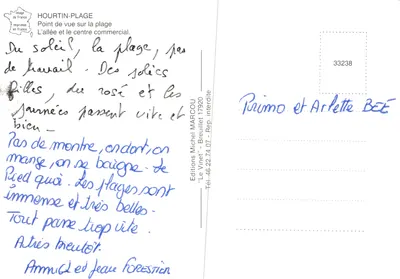 HOURTIN-PLAGE
Point de vue sur la plage
L'allée et le centre commercial.
Du soleil, la plage, pas
de travail. Des jolies
filles, du rosé et les
journées passent vite et
bien -
Pas de montre, on dort, on
mange, on se baigne. Le
Pied quoi. Les plages sont
immense et très belles.
Tout passe trop vite.
A très bientôt.
et Jean FORESTIER
Editions Michel MARCOU
"Le Vinet" - Breuillet 17920
Tél. 46.22.74.07 - Rep. interdite
33238
Primo et Arlette BEÉ